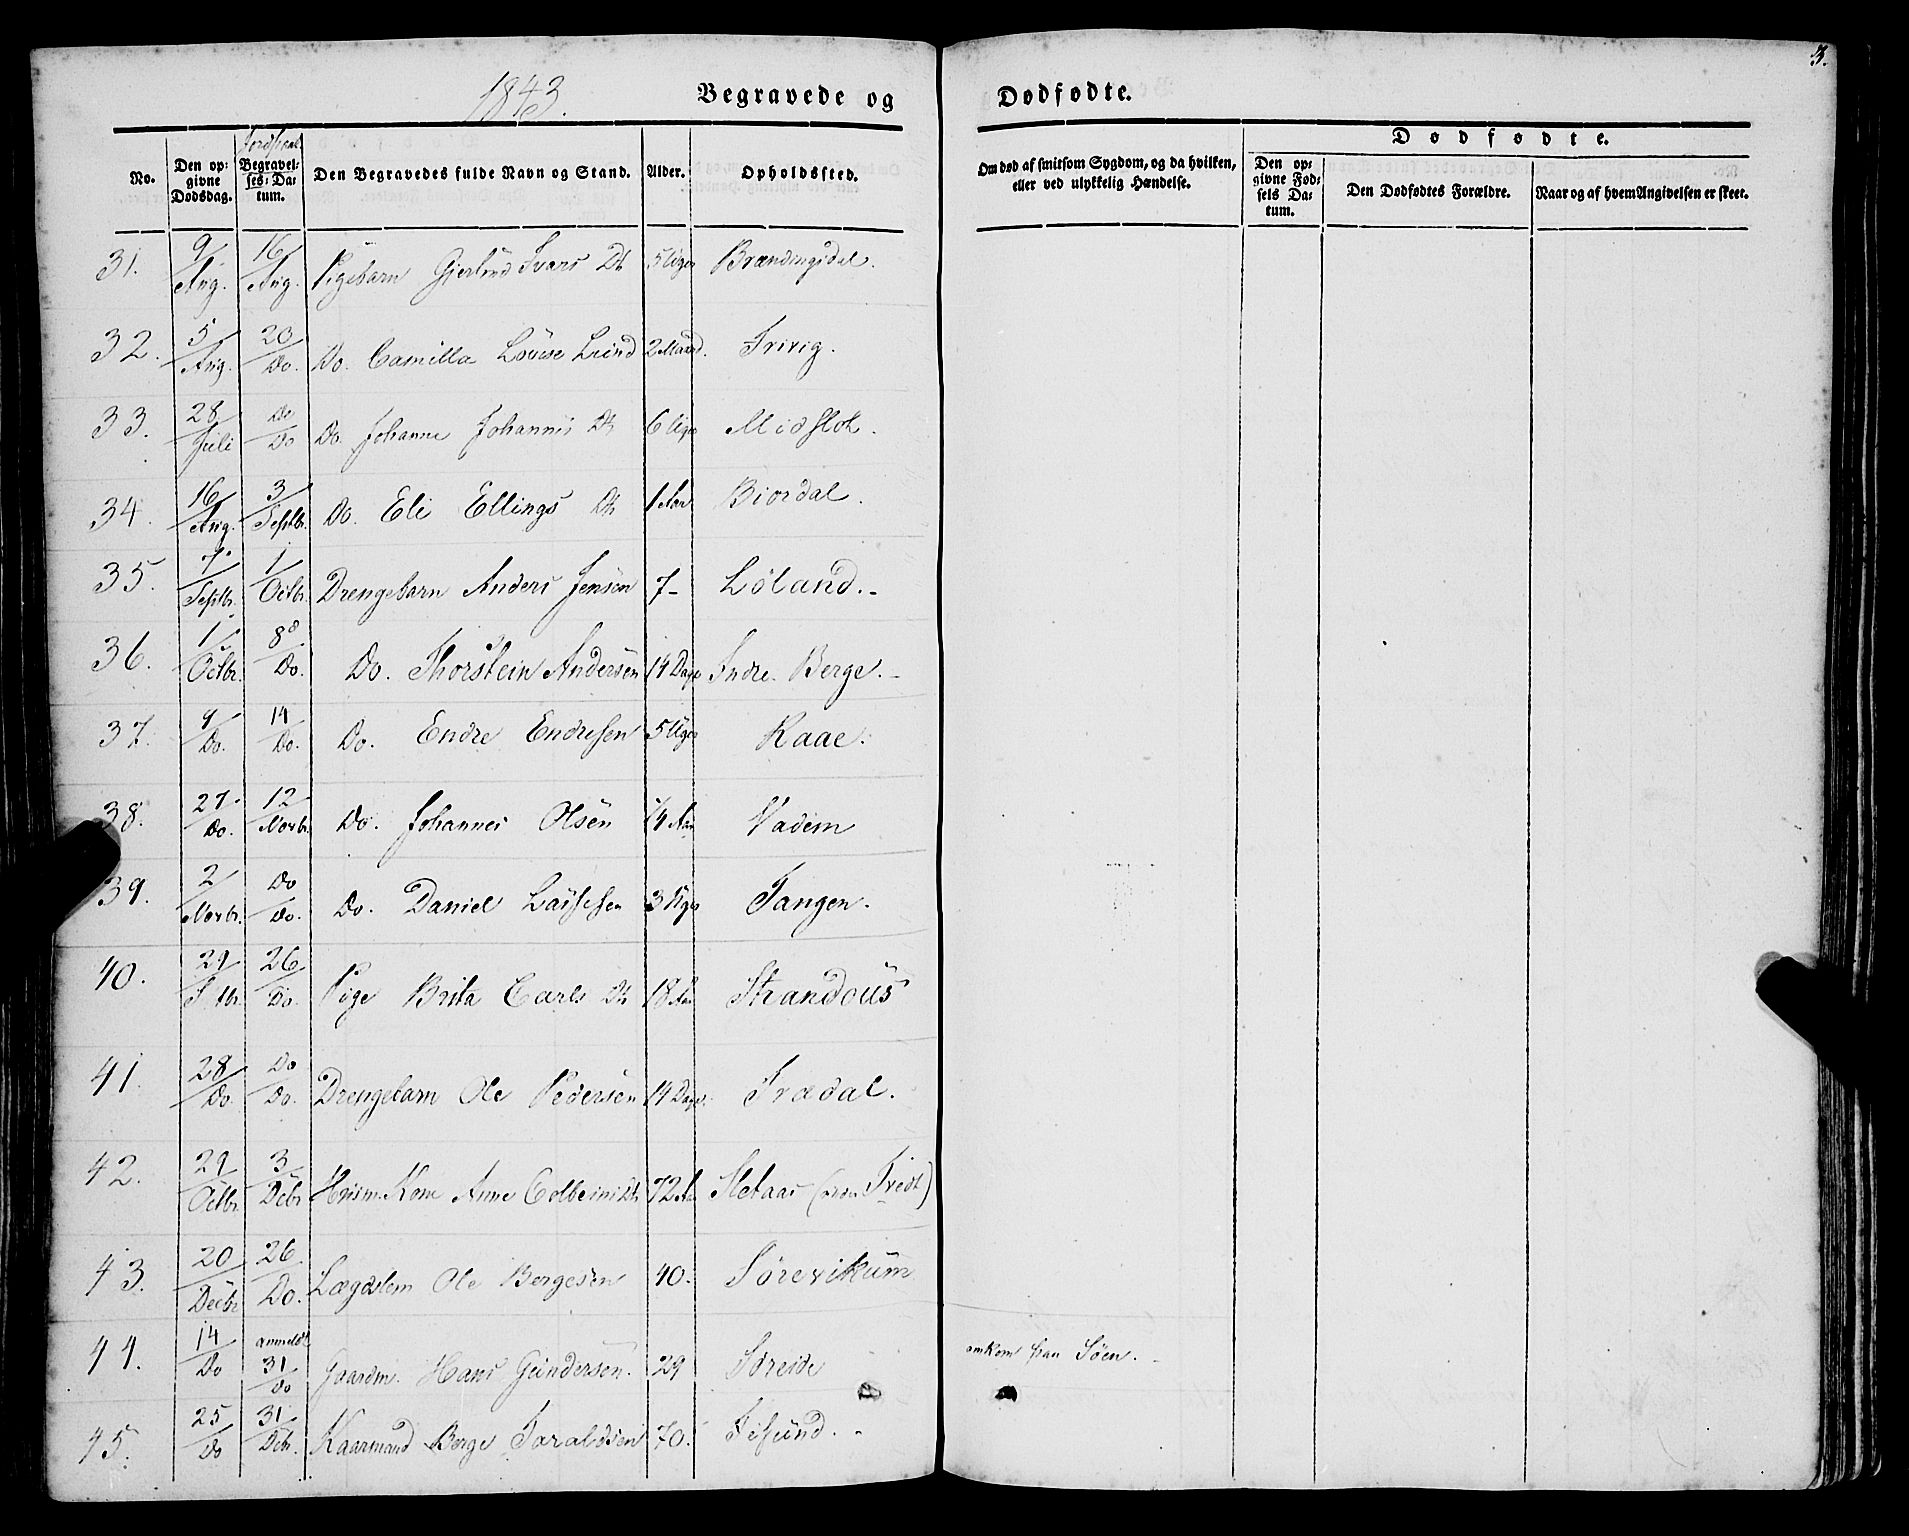 3.
1843.
Begravede og Dødfødte.
No.
Den opgivne Dødsdag.
Jordfæst.
Begravelses-Datum.
Den Begravedes fulde Navn og Stand.
Alder.
Opholdssted.
Om død af smitsom Sygdom, og da hvilken, eller ved ulykkelig Hændelse.
Dødfødte.
Den opgivne Fødsels Datum.
Den Dødfødtes Forældre.
Naar og af hvem Angivelsen er skeet.
31. 9/Aug. 16/Aug. Pigebarn Gjertrud Ivars Dt 5 Uger Brændingsdal.
32. 5/Aug. 20/Do. Do. Camilla Lovise Lund 2 Maaned. Trivig.
33. 28/Juli Do/Do Do. Johanne Johannis Dt 6 Uger Midslot.
34. 16/Aug. 3/Septbr. Do. Eli Ellings Dt 1 Aar Biordal.
35. 7/Septbr. 1/Octbr. Drengebarn Anders Jensen 7- Løland.-
36. 1/Octbr. 8/Do. Do. Thorstein Andersen 14 Dage Indre Berge.-
37. 9/Do. 14/Do. Do. Endre Endresen 5 Uger Raae.
38. 27/Do. 12/Novbr. Do. Johannes Olsen 1/4 Aar Vadem
39. 2/Novbr. Do/Do. Do. Daniel Lassesen 3 Uger Tangen.
40. 29/ 26/Do. Pige Brita Carls Dt 18 Aar Strandous
41. 28/Do. Do/Do. Drengebarn Ole Pedersen 14 Dage. Trædal.
42. 29/Octbr 3/Decbr Huusm. Kone Anne Colbeins Dt 72 Aar Sletaas (
43. 20/Decbr 26/Do. Lægdslem Ole Bergesen 40. Sørevikum
44. 14/Do anmeldt 31/Do Gaardm. Hans Gundersen. 29 Søreide omkom paa Søen.-
45. 25/Do 31/Dcbr. Kaarmand Berge Taraldsen 70. Tisund.-